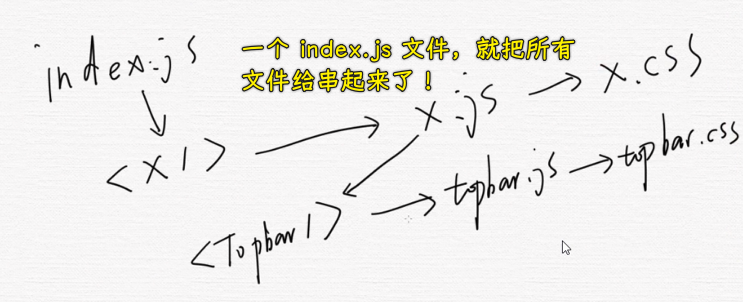 index.js
一个 index.js 文件，就把所有
文件给串起来了！
<X /> → x.js → x.css
<Topbar /> → topbar.js → topbar.css